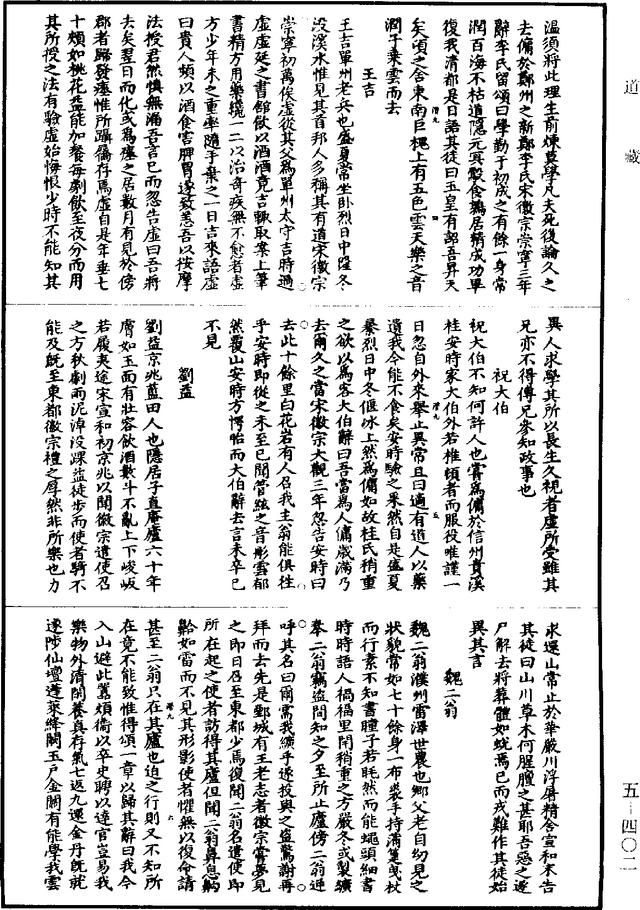 道藏
溫須將此理生前煉莫學凡夫死後論久之
去傭於鄭州之新鄭李氏宋徽宗崇寧三年
辭李氏留頌曰學勤于初成之有餘一身常
潤百海不枯道隱元冥鷇食鶉居精成功畢
復我清都是日語其徒曰玉皇有詔吾昇天
矣頃之舍東南巨槐上有五色雲天樂之音
潤子乘雲而去
王吉
王吉單州老兵也盛暑常坐臥烈日中隆冬
沒溪水惟見其首邦人多稱其有道宋徽宗
崇寧初萬俟虛從其父為單州太守吉時過
虛虛延之書館飲以酒酒竟吉輒取案上筆
書精方用藥纔一二以治奇疾無不愈者虛
方少年未之重率隨手棄之一日吉來語虛
曰貴人頻以酒食害脾胃遂致恙吾以按摩
法授君然慎無漏吾言已而忽告虛曰吾將
去矣翌日而化或寫瘞之居數月有見於傍
郡者歸發瘞惟所躡屩存焉虛自是年垂七
十頰如桃花益能加餐每劇飲至夜分而用
其所授之法有驗虛始悔恨少時不能知其
異人求學其所以長生久視者虛所受雖其
兄亦不得傳兄參知政事也
祝大伯
祝大伯不知何許人也嘗為傭於信州貴溪
桂安時家大伯外若椎頓者而服役唯謹一
日忽自外來舉止異常且曰適有道人以藥
遺我今能不食矣安時驗之果然自是盛夏
暴烈日中冬偃冰上然為傭如故桂氏稍重
之欲以為客大伯辭曰吾當為人傭歲滿乃
去爾久之當宋徽宗大觀三年忽告安時曰
去此十餘里曰花岩有人召我主翁能俱往
乎安時即從之未至已聞管絃之音彤雲郁
然覆山安時方愕怡而大伯辭去言未卒已
不見
劉益
劉益京兆藍田人也隱居子直庵廬六十年
膚如玉面有壯容飲酒數斗不亂上下峻坂
若履夷途宋宣和初京兆以聞徽宗遣使召
之方秋劇雨泥淖沒踝益徒步而使者騎不
能及既至東都徽宗禮之厚然非所樂也力
求還山常止於華嚴川浮屠精舍宣和末告
其徒曰山川草木何腥膻之甚耶吾惡之遂
尸解去將葬體如蛻焉已而戎難作其徒始
異其言
魏二翁
魏二翁濮州雷澤世農也鄉父老自幼見之
狀貌常如七十餘身一布裘手持蒲箑曳杖
而行素不知書瞳子若眊然而能蠅頭細書
時時語人禍福里閈稍重之方嚴冬或製纊
奉二翁竊盜間知之夕至所止廬傍二翁逆
呼其名曰爾需我纊乎遂投與之盜驚謝再
拜而去先是鄄城有王老志者徽宗嘗夢見
之即日召至東都少焉復聞二翁名遣使即
所在起之使者訪得其廬但聞二翁鼻息齁
齁如雷而不見其形影使者懼無以復命請
甚至二翁只在其廬也迫之行則又不知所
在竟不能致惟得頌一章以歸其辭曰我今
入山避此嚣煩衛以卒史聘以達官豈易我
樂物外清閑養真存氣七返九還金丹既就
遂陟仙壇蓬萊絳闕玉戶金關有能學我雲
五－四〇二